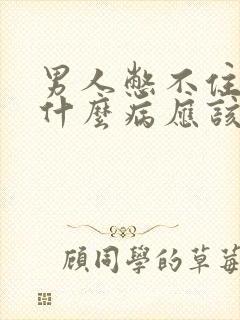 男人憋不住
什麼病應該
顧同學的草莓